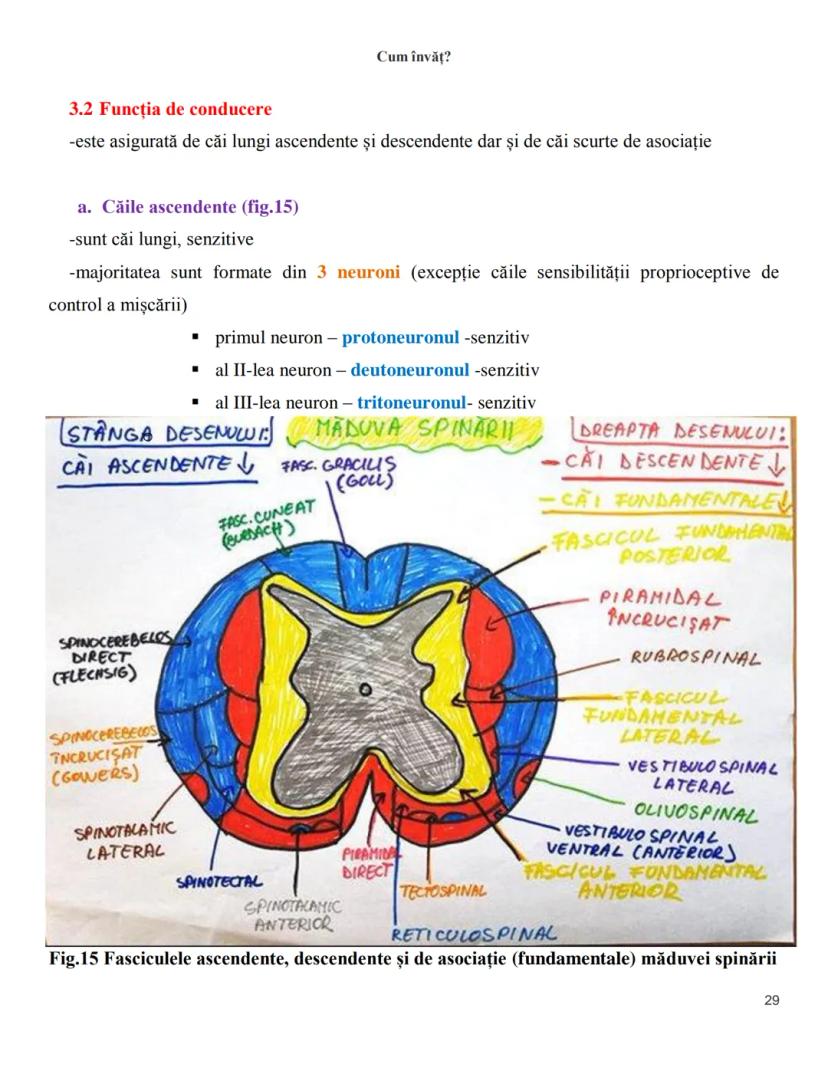 Cum învăț?
3.2 Funcția de conducere
-este asigurată de căi lungi ascendente și descendente dar și de căi scurte de asociație
a. Căile ascendente (fig.15)
-sunt căi lungi, senzitive
-majoritatea sunt formate din 3 neuroni (excepție căile sensibilității proprioceptive de
control a mișcării)
▪ primul neuron – protoneuronul -senzitiv
▪ al II-lea neuron – deutoneuronul -senzitiv
▪ al III-lea neuron – tritoneuronul- senzitiv
STÂNGA DESENULUI:
CĂI ASCENDENTE ↓
MĂDUVA SPINĂRII
DREAPTA DESENULUI:
- CĂI DESCENDENTE ↓
- CĂI FUNDAMENTALE ↓
FASC. GRACILIS
(GOLL)
FASC. CUNEAT
(BURDACH)
SPINOCEREBELOS
DIRECT
(FLECHSIG)
SPINOCEREBELOS
ÎNCRUCIȘAT
(GOWERS)
SPINOTALAMIC
LATERAL
SPINOTECTAL
SPINOTALAMIC
ANTERIOR
PIRAMIDAL
DIRECT
RETICULOSPINAL
TECTOSPINAL
FASCICUL FUNDAMENTAL
POSTERIOR
PIRAMIDAL
ÎNCRUCIȘAT
RUBROSPINAL
FASCICUL
FUNDAMENTAL
LATERAL
VESTIBULOSPINAL
LATERAL
OLIVOSPINAL
VESTIBULO SPINAL
VENTRAL (ANTERIOR)
FASCICUL FUNDAMENTAL
ANTERIOR
Fig.15 Fasciculele ascendente, descendente și de asociație (fundamentale) măduvei spinării
29